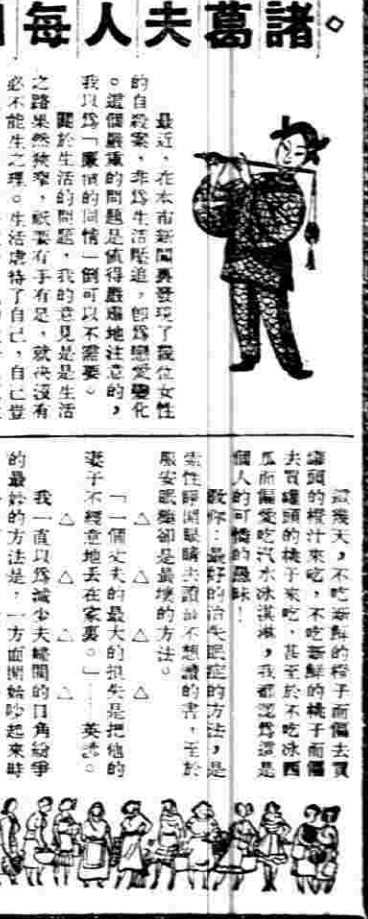 諸葛夫人每
最近,在本市新聞裏發現了幾位女性
的自殺案,非爲生活壓迫,即爲戀愛變化
。這個嚴重的問題是值得嚴肅地注意的,
我以爲「廉價的同情」倒可以不需要。
關於生活的問題,我的意見是是生活
之路果然狹窄,祇要有手有足,就決沒有
必不能生之理。生活虐待了自己,自己豈
這幾天,不吃新鮮的橙子而偏去買
罐頭的橙汁來吃,不吃新鮮的桃子而偏
去買罐頭的桃子來吃,甚至於不吃冰西
瓜而偏愛吃汽水冰淇淋,我都認爲這是
個人的可憐的愚昧!
教你:最好的治失眠症的方法,是
索性睜開眼睛去讀並不想讀的書,至於
服安眠藥卻是最壞的方法。
△ △ △ △
「一個丈夫的最大的損失是把他的
妻子不經意地丟在家裏。」——英諺。
△ △ △ △
我一直以爲減少夫婦間的口角紛爭
的最妙的方法是,一方面開始吵起來時